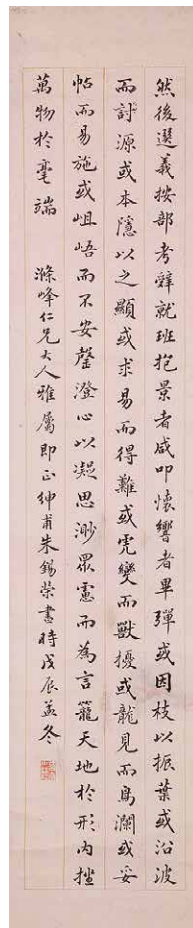 然後選義按部考辭就班抱景者咸叩懷響者畢彈或因枝以振葉或沿波
而討源或本隱以之顯或求易而得難或虎變而獸擾或龍見而鳥瀾或妥
帖而易施或岨峿而不安罄澄心以凝思渺眾慮而為言籠天地於形內挫
萬物於毫端 滌峰仁兄大人雅屬即正紳甫朱錫榮書時戊辰孟冬